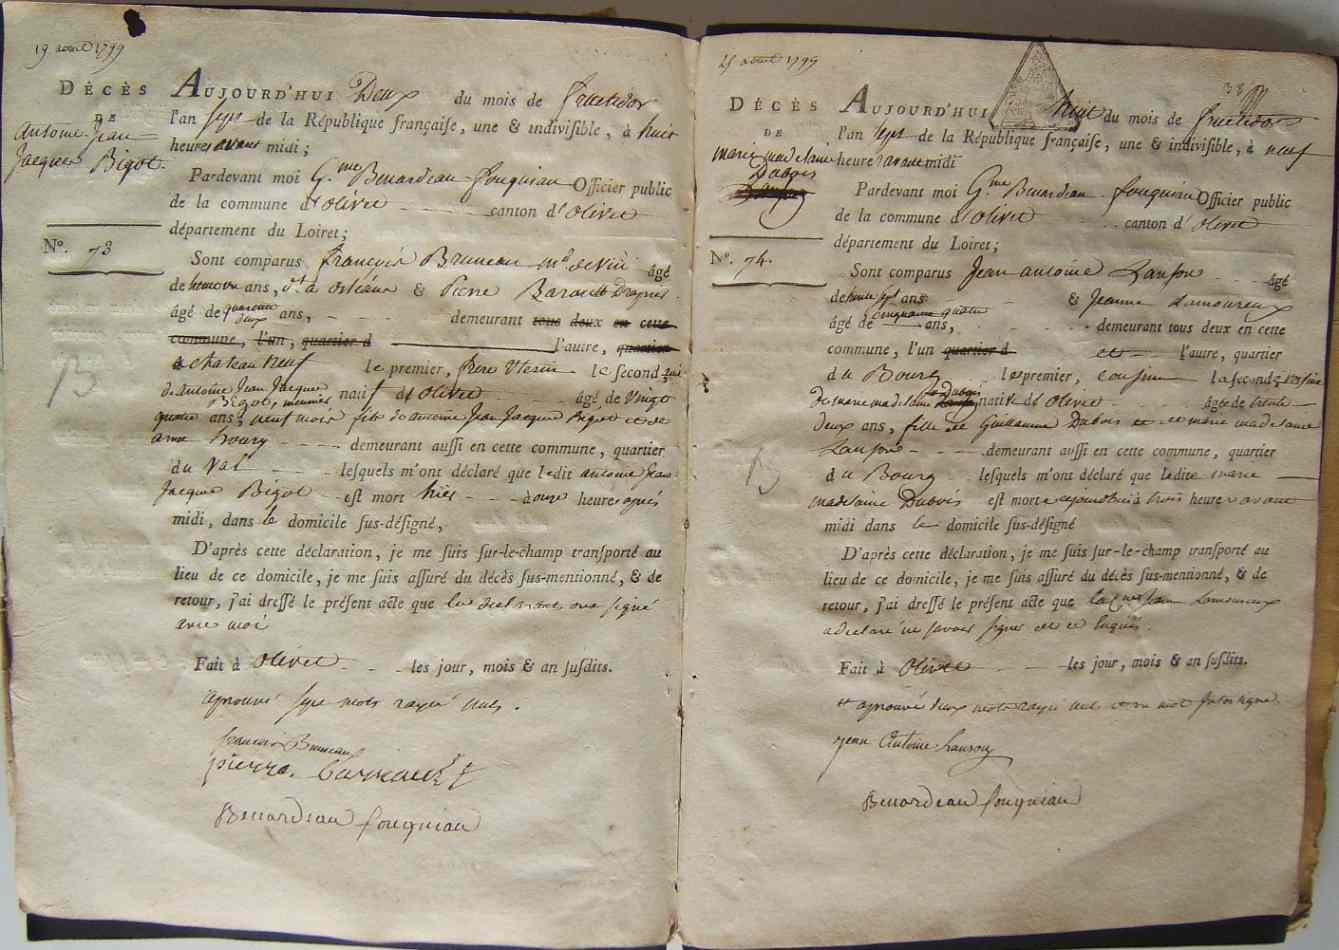 19 aout 1799
DÉCÈS
DE
Antoine Jean
Jacques Bigot.
N°. 73
AUJOURD'HUI Deux du mois de fructidor
l'an sept de la République françaiſe, une & indiviſible, à huit
heures avant midi;
Pardevant moi G.me Benardeau-fouqueau Officier public
de la commune d'Olivet canton d'Olivet
département du Loiret;
Sont comparus françois Bruneau md de vin âgé
de ans, dt à orléans & Pierre Barault
âgé de quarante deux ans, demeurant tous deux en cette
commune, l'un, quartier d l'autre, quartier
à chateau neuf le premier, frère Uterin le ſecond
de antoine Jean Jacques
Bigot, meunier natif d'Olivet âgé de Vingt
quatre ans, neuf mois fils de antoine Jean Jacques Bigot et de
anne Boury demeurant auſſi en cette commune, quartier
du Val leſquels m'ont déclaré que ledit antoine Jean
Jacques Bigot eſt mort hier à onze heures après
midi, dans le domicile ſus-déſigné,
D'après cette déclaration, je me ſuis ſur-le-champ tranſporté au
lieu de ce domicile, je me ſuis aſſuré du décès ſus-mentionné, & de
retour, j'ai dreſſé le préſent acte que les declarants ont signé
avec moi
Fait à Olivet les jour, mois & an ſuſdits.
aprouvé sept mots rayés nuls.
francois Bruneau
pierre barrault
Benardeau fouqueau
B
25 aout 1799
38
DÉCÈS
DE
marie madelaine
Dubois
N°. 74.
AUJOURD'HUI huit du mois de fructidor
l'an sept de la République françaiſe, une & indiviſible, à neuf
heures avant midi
Pardevant moi G.me Benardeau fouqueau Officier public
de la commune d'Olivet canton d'Olivet
département du Loiret;
Sont comparus Jean antoine Lanson âgé
de trente sept ans & Jeanne Lamoureux
âgé de cinquante quatre ans, demeurant tous deux en cette
commune, l'un quartier d et l'autre, quartier
du Bourg le premier, cousin la ſeconde voisine
de marie madelaine Dubois native d'Olivet âgée de trente
deux ans, fille de Guillaume Dubois et de marie madelaine
Lanson demeurant auſſi en cette commune, quartier
du Bourg leſquels m'ont déclaré que ladite marie
madelaine Dubois eſt morte aujourdhui à trois heures avant
midi dans le domicile ſus-déſigné
D'après cette déclaration, je me ſuis ſur-le-champ tranſporté au
lieu de ce domicile, je me ſuis aſſuré du décès ſus-mentionné, & de
retour, j'ai dreſſé le préſent acte que Lamoureux
a declaré ne savoir signer de ce
Fait à Olivet les jour, mois & an ſuſdits.
et aprouvé deux mots rayés nuls et un mot
jean Antoine Lanson
Benardeau fouqueau
B